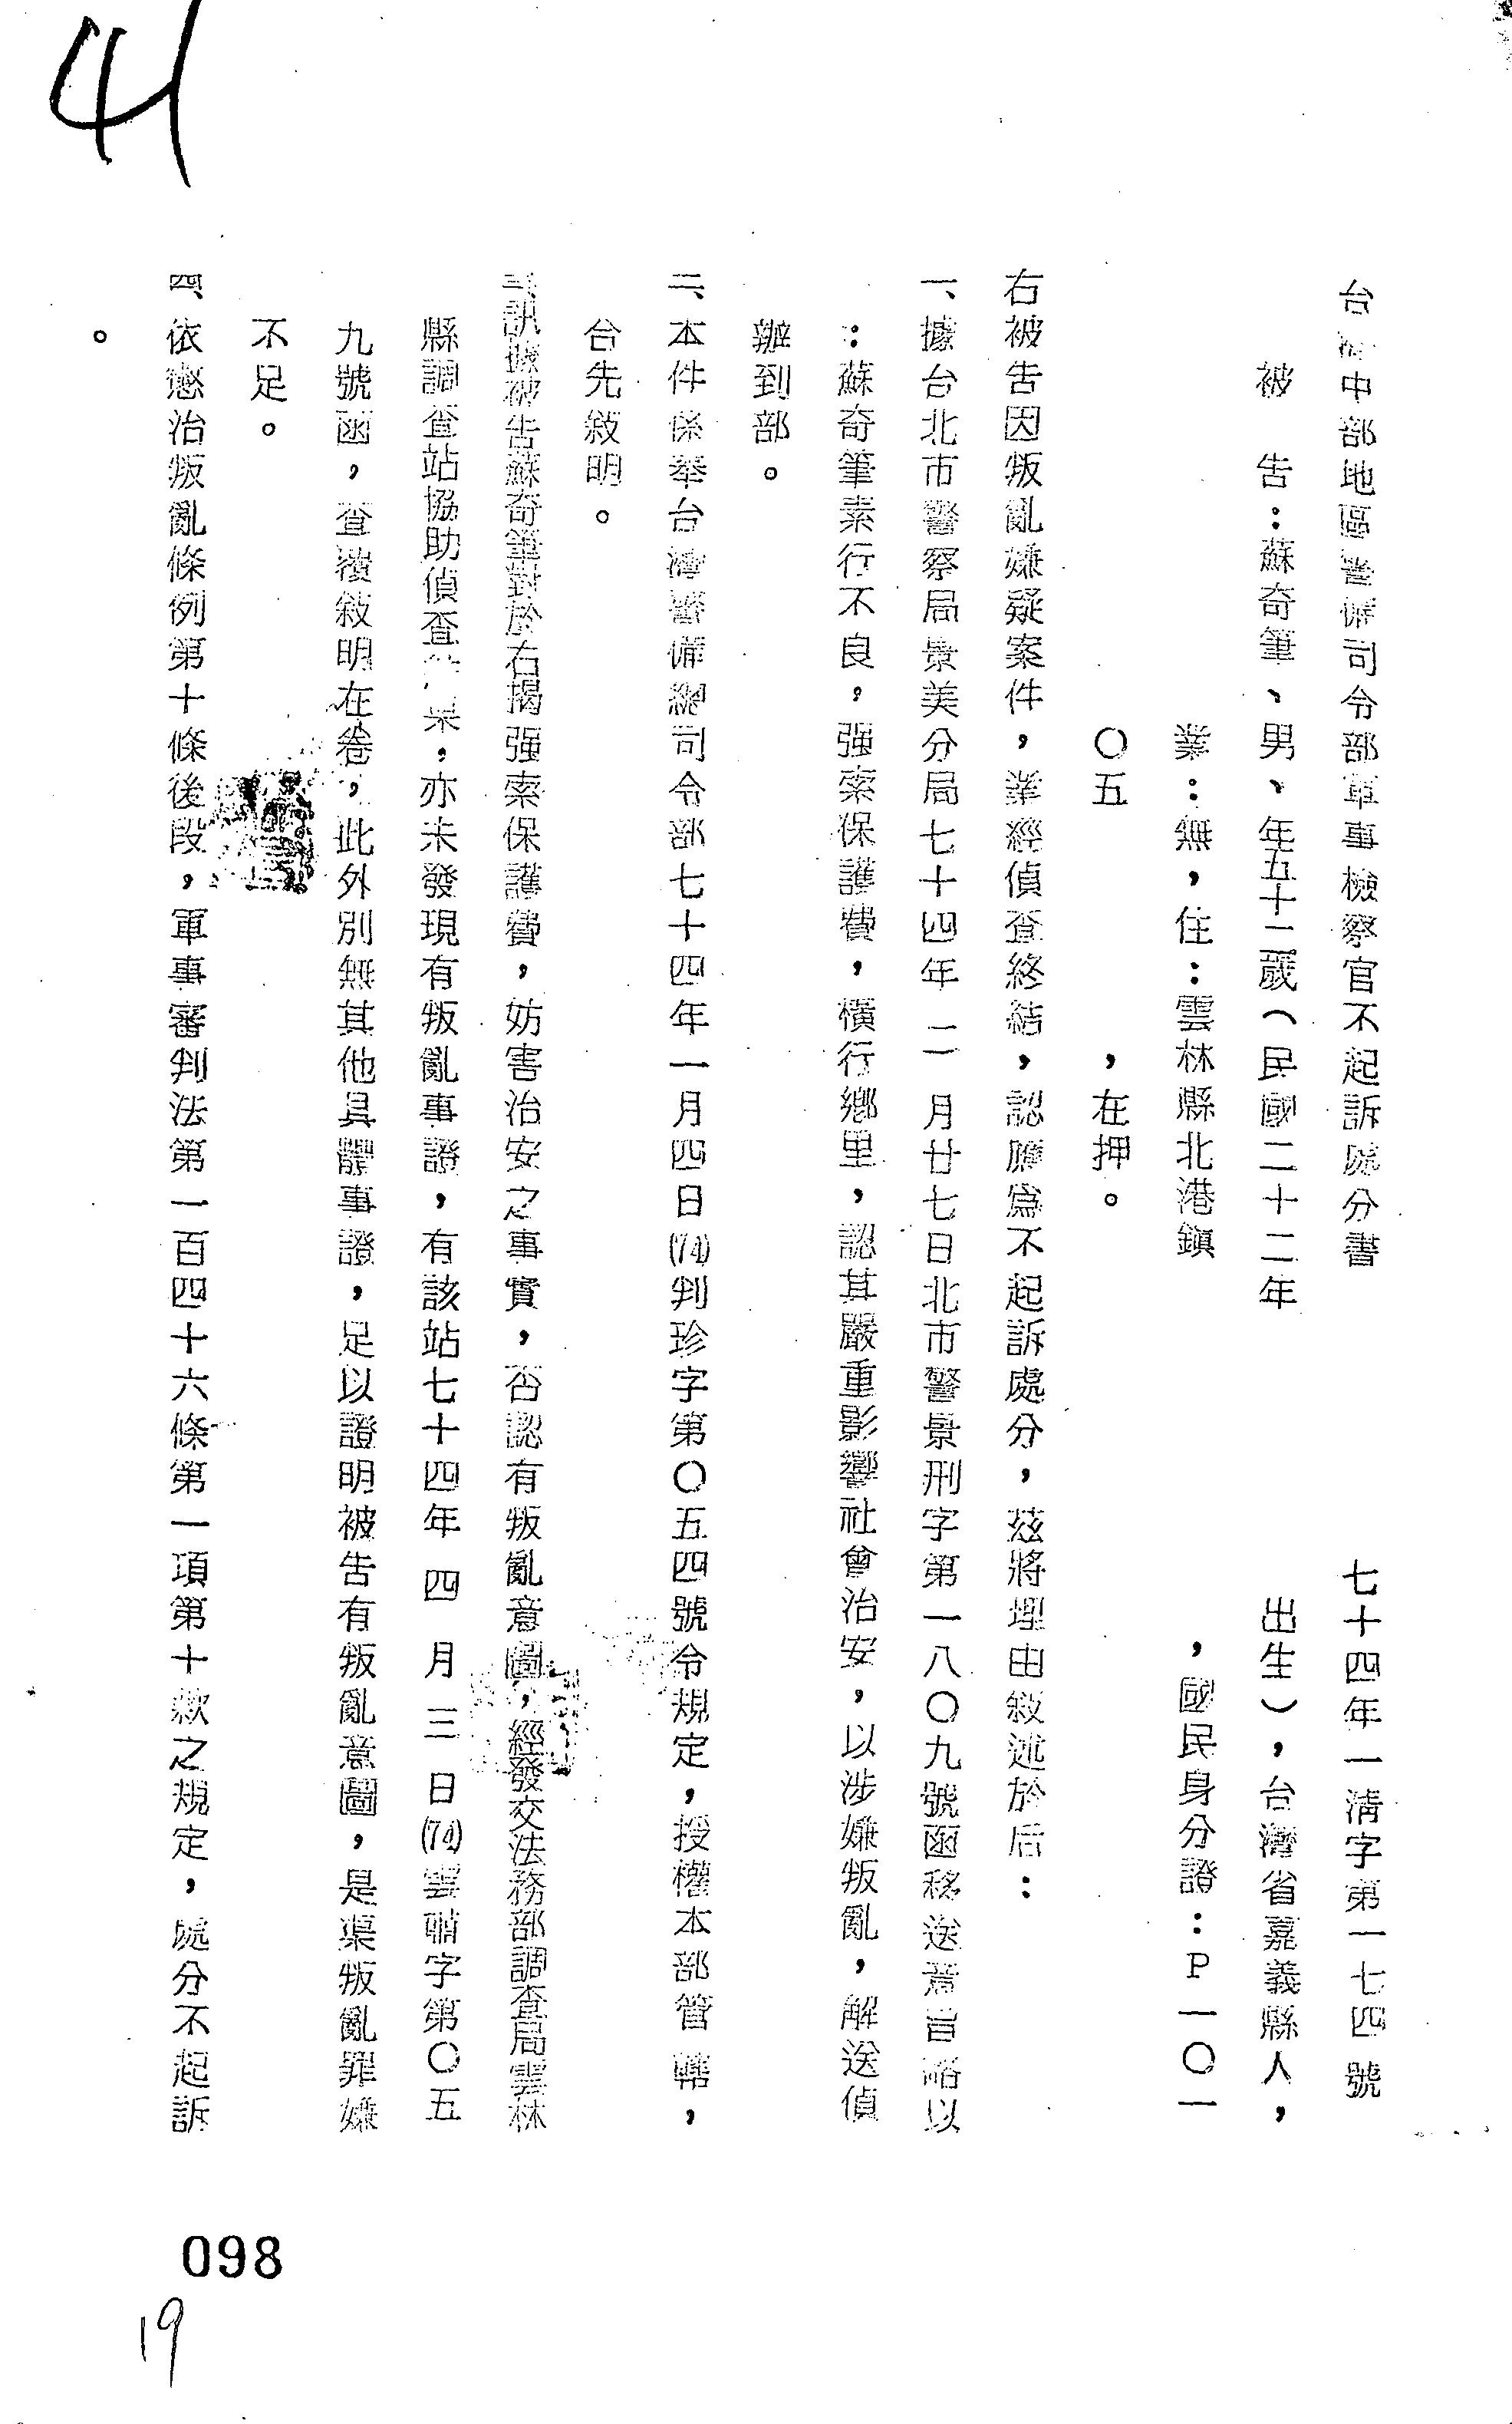 41
台灣中部地區警備司令部軍事檢察官不起訴處分書 七十四年一清字第一七四號
被 告：蘇奇筆、男、年五十二歲（民國二十二年 出生），台灣省嘉義縣人，
業：無，住：雲林縣北港鎮 ，國民身分證：P一〇一
〇五 ，在押。
右被告因叛亂嫌疑案件，業經偵查終結，認應為不起訴處分，茲將理由敘述於后：
一、據台北市警察局景美分局七十四年二月廿七日北市警景刑字第一八〇九號函移送意旨略以
：蘇奇筆素行不良，强索保護費，橫行鄉里，認其嚴重影響社會治安，以涉嫌叛亂，解送偵
辦到部。
二、本件係奉台灣警備總司令部七十四年一月四日(74)判珍字第〇五四號令規定，授權本部管轄，
合先敘明。
三、訊據被告蘇奇筆對於右揭强索保護費，妨害治安之事實，否認有叛亂意圖，經發交法務部調查局雲林
縣調查站協助偵查結果，亦未發現有叛亂事證，有該站七十四年四月三日(74)雲輔字第〇五
九號函，查覆敘明在卷，此外別無其他具體事證，足以證明被告有叛亂意圖，是渠叛亂罪嫌
不足。
四、依懲治叛亂條例第十條後段，軍事審判法第一百四十六條第一項第十款之規定，處分不起訴
。
098
19